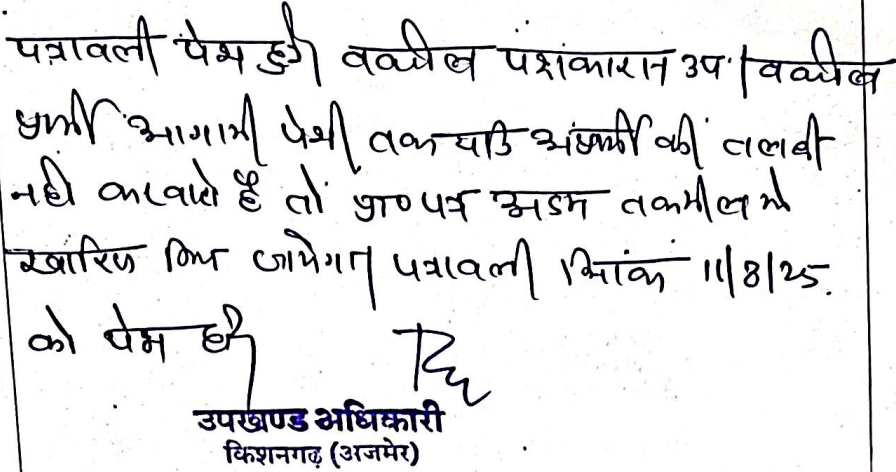 पत्रावली पेश हुई। वकील पक्षकारान उप.। वकील
प्रार्थी आगामी पेशी तक यदि अप्रार्थी की तलबी
नही करवाते है तो प्रा० पत्र अदम तकमील मे
खारिज किया जायेगा। पत्रावली दिनांक 11/8/25.
को पेश हो।
उपखण्ड अधिकारी
किशनगढ़ (अजमेर)